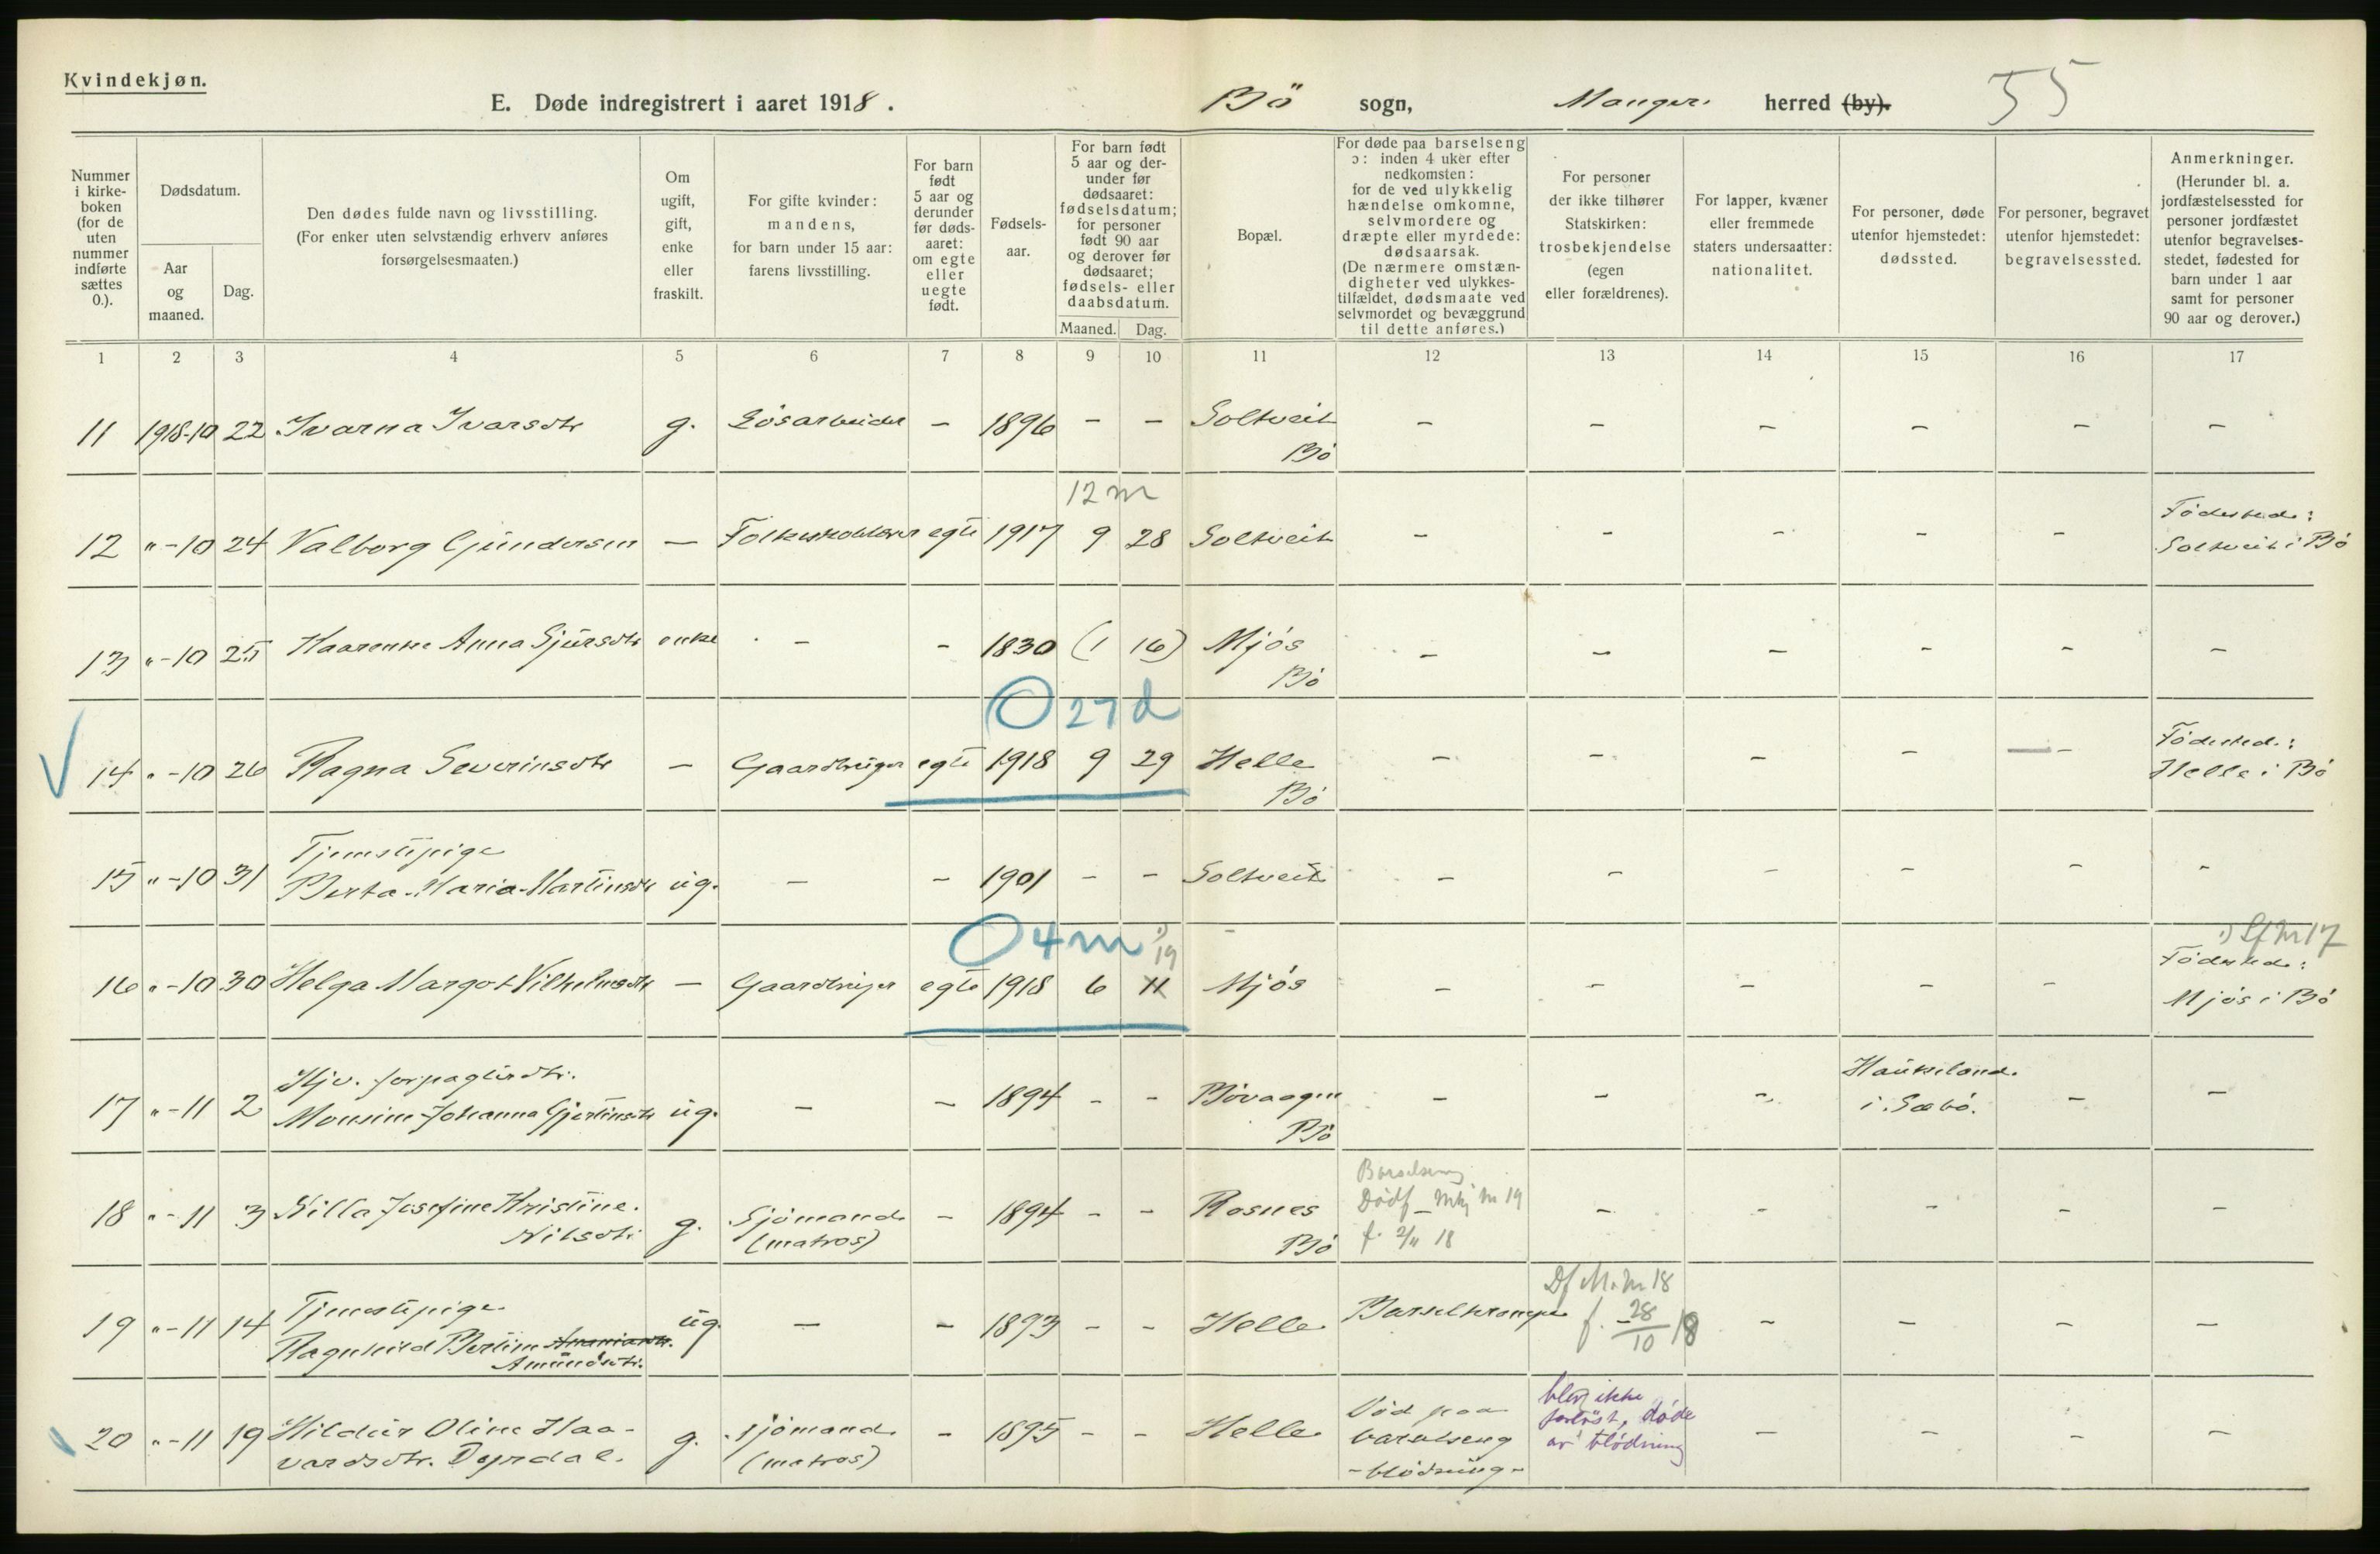 Kvindekjøn.
E. Døde indregistrert i aaret 1918.
Bö sogn, Manger herred (by).
55
Nummer i kirkeboken (for de uten nummer indførte sættes 0.).
Dødsdatum.
Aar og maaned.
Dag.
Den dødes fulde navn og livsstilling.
(For enker uten selvstændig erhverv anføres forsørgelsesmaaten.)
Om ugift, gift, enke eller fraskilt.
For gifte kvinder: mandens, for barn under 15 aar: farens livsstilling.
For barn født 5 aar og derunder før dødsaaret: om egte eller uegte født.
Fødselsaar.
For barn født 5 aar og derunder før dødsaaret: fødselsdatum; for personer født 90 aar og derover før dødsaaret; fødsels- eller daabsdatum.
Maaned. Dag.
Bopæl.
For døde paa barselseng ɔ: inden 4 uker efter nedkomsten: for de ved ulykkelig hændelse omkomne, selvmordere og dræpte eller myrdede: dødsaarsak. (De nærmere omstændigheter ved ulykkestilfældet, dødsmaate ved selvmordet og bevæggrund til dette anføres.)
For personer der ikke tilhører Statskirken: trosbekjendelse (egen eller forældrenes).
For lapper, kvæner eller fremmede staters undersaatter: nationalitet.
For personer, døde utenfor hjemstedet: dødssted.
For personer, begravet utenfor hjemstedet: begravelsessted.
Anmerkninger. (Herunder bl. a. jordfæstelsessted for personer jordfæstet utenfor begravelsesstedet, fødested for barn under 1 aar samt for personer 90 aar og derover.)
1 2 3 4 5 6 7 8 9 10 11 12 13 14 15 16 17
11 1918-10 22 Ivarna Ivarsdtr g. Lösarbeider – 1896 – – Soltveit – – – – – –
Bö
12 m
12 "-10 24 Valborg Gundersen – egte 1917 9 28 Soltveit – – – – – Födested: Soltveit i Bö
13 "-10 25 Anna Sjursdtr enke – – 1830 (1 16) Mjös – – – – – –
Bö
O 27 d
14 "-10 26 Ragna Severinsdtr – Gaardbruger egte 1918 9 29 Helle – – – – – Födested: Helle i Bö
Bö
Tjenestepige
15 "-10 31 Berta Maria Martinsdtr ug. – – 1901 – – Soltveit – – – – – –
O 4 m 19
16 "-10 30 Helga Margot Vilhelmsdtr – Gaardbruger egte 1918 6 11 Mjös – – – – – Födested: Mjös i Bö
17 "-11 2 Monsine Johanna Gjertinsdtr ug. – – 1894 – – Bövaagen – – – Haukeland i Sæbö. – –
Bö
18 "-11 3 Nilla Josefine Kristine Nilsdtr g. Sjömand (matros) – 1894 – – Rosnes – – – – –
Bö
Barselseng
Dödf. Mkj nr 19
f. 2/11 18
Tjenestepige
19 "-11 14 Ragnhild Bertine Amundsdtr. ug. – – 1893 – – Helle Barselkrampe – – – –
Df M. nr 18
f. 28/10 18
20 "-11 19 Hildur Oline Haavardsdtr. Dyrdal. g. Sjömand (matros) – 1895 – – Helle Död paa barselseng – blödning – – – – –
blev ikke forløst, døde av blödning